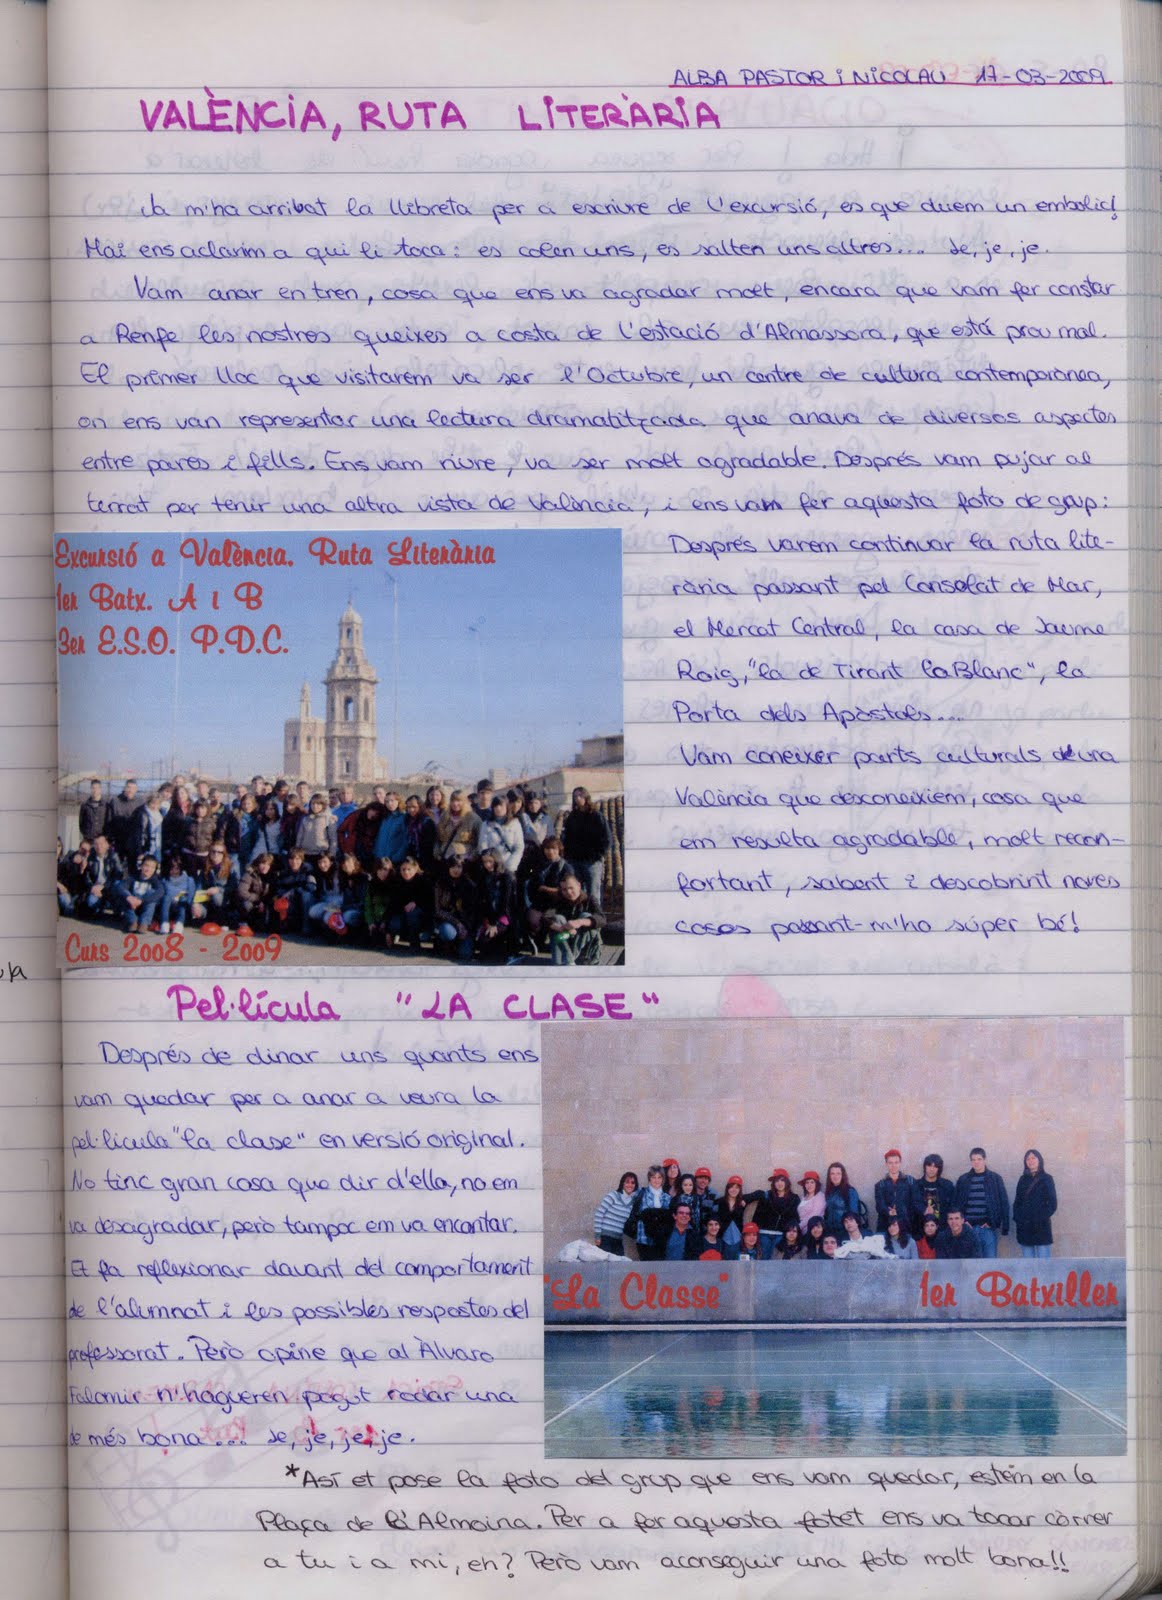 ALBA PASTOR i NICOLAU 17-03-2009
VALÈNCIA, RUTA LITERÀRIA
Ja m'ha arribat la llibreta per a escriure de l'excursió, es que duem un embolic!
Mai ens aclarim a qui li toca: es colen uns, es salten uns altres... Je, je, je.
Vam anar en tren, cosa que ens va agradar molt, encara que vam fer constar
a Renfe les nostres queixes a costa de l'estació d'Almassora, que está prou mal.
El primer lloc que visitarem va ser l'Octubre, un centre de cultura contemporànea,
on ens van representar una lectura dramatitzada que anava de diversos aspectes
entre pares i fills. Ens vam riure, va ser molt agradable. Després vam pujar al
terrat per tenir una altra vista de València, i ens vam fer aquesta foto de grup:
Excursió a València. Ruta Literària
1er Batx. A i B
3er E.S.O. P.D.C.
Curs 2008 - 2009
Després varem continuar la ruta lite-
rària passant pel Consolat de Mar,
el Mercat Central, la casa de Jaume
Roig, "la de Tirant lo Blanc", la
Porta dels Apòstols...
Vam coneixer parts culturals d'una
València que desconeixiem, cosa que
em resulta agradable, molt recon-
fortant, sabent i descobrint noves
coses passant-m'ho súper bé!
Pel·lícula "LA CLASE"
Després de dinar uns quants ens
vam quedar per a anar a veure la
pel·licula "la clase" en versió original.
No tinc gran cosa que dir d'ella, no em
va desagradar, però tampoc em va encantar.
Et fa reflexionar davant del comportament
de l'alumnat i les possibles respostes del
professorat. Però opine que al Àlvaro
Falomir n'hagueren pogut rodar una
de més bona... Je, je, je, je.
"La Classe" 1er Batxiller
*Así et pose la foto del grup que ens vam quedar, estem en la
Plaça de l'Almoina. Per a fer aquesta fotet ens va tocar còrrer
a tu i a mi, eh? Però vam aconseguir una foto molt bona!!